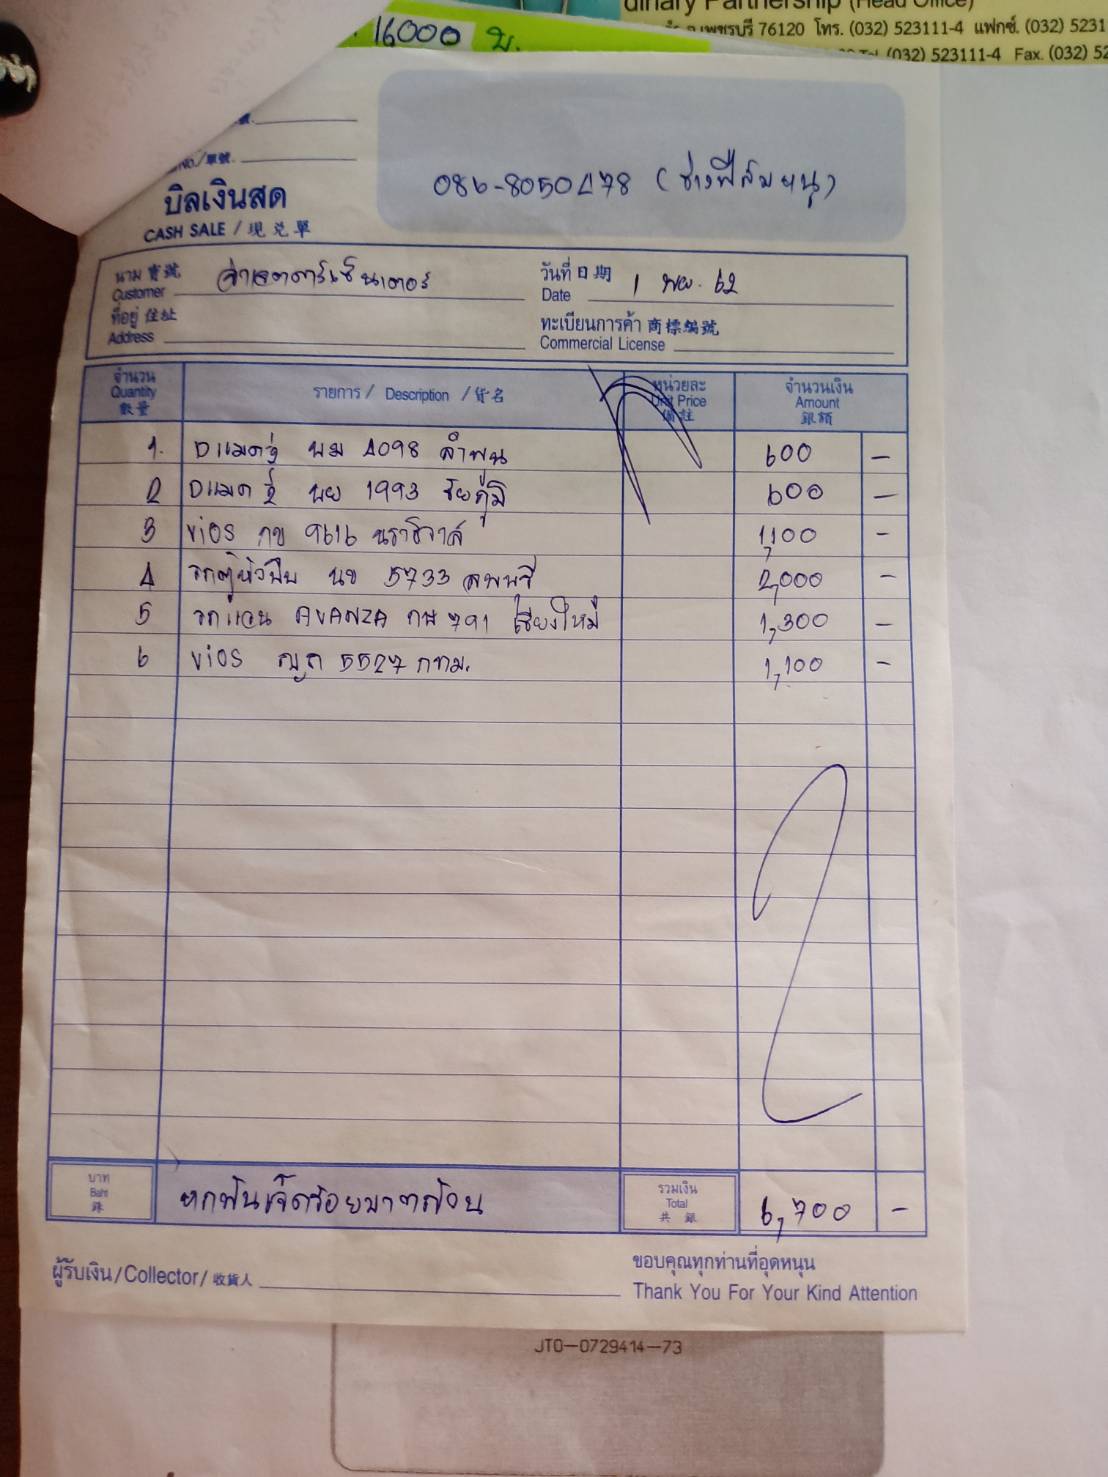 16000 บ.
dinary Partnership (Head Office)
เพชรบุรี 76120 โทร. (032) 523111-4 แฟกซ์. (032) 5231
(032) 523111-4 Fax. (032) 52
NO./單號.
086-8050478 (ช่างฟิล์มหนุ่)
บิลเงินสด
CASH SALE / 現兑單
นาม 寳號
Customer จ่าเจตคาร์เซ็นเตอร์
วันที่ 日期
Date 1 พย. 62
ที่อยู่ 住址
Address
ทะเบียนการค้า 商標編號
Commercial License
จำนวน
Quantity
數量
รายการ / Description / 貨名
หน่วยละ
Unit Price
備註
จำนวนเงิน
Amount
銀額
1. Dแมคซ์ บม 4098 ลำพูน 600 -
2 Dแมคซ์ บย 1993 ชัยภูมิ 600 -
3 ViOS กข 9616 นราธิวาส 1,100 -
4 รถตู้หัวบีบ นข 5733 ลพบุรี 2,000 -
5 รถแวน AVANZA กษ 791 เชียงใหม่ 1,300 -
6 ViOS ญถ 5527 กทม. 1,100 -
บาท
Baht
銖
หกพันเจ็ดร้อยบาทถ้วน
รวมเงิน
Total
共銀
6,700 -
ผู้รับเงิน/Collector/收貨人
ขอบคุณทุกท่านที่อุดหนุน
Thank You For Your Kind Attention
JT0-0729414-73